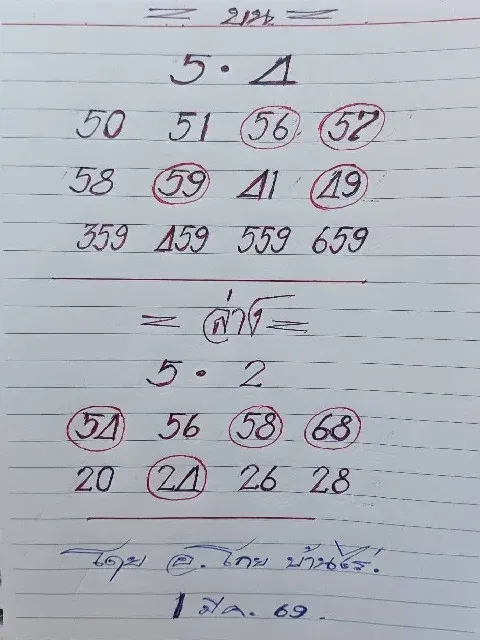 = บน =
5 · 4
50 51 56 57
58 59 41 49
359 459 559 659
= ล่าง =
5 · 2
54 56 58 68
20 24 26 28
โดย อ. โกย บ้านไร่.
1 มีค. 69.